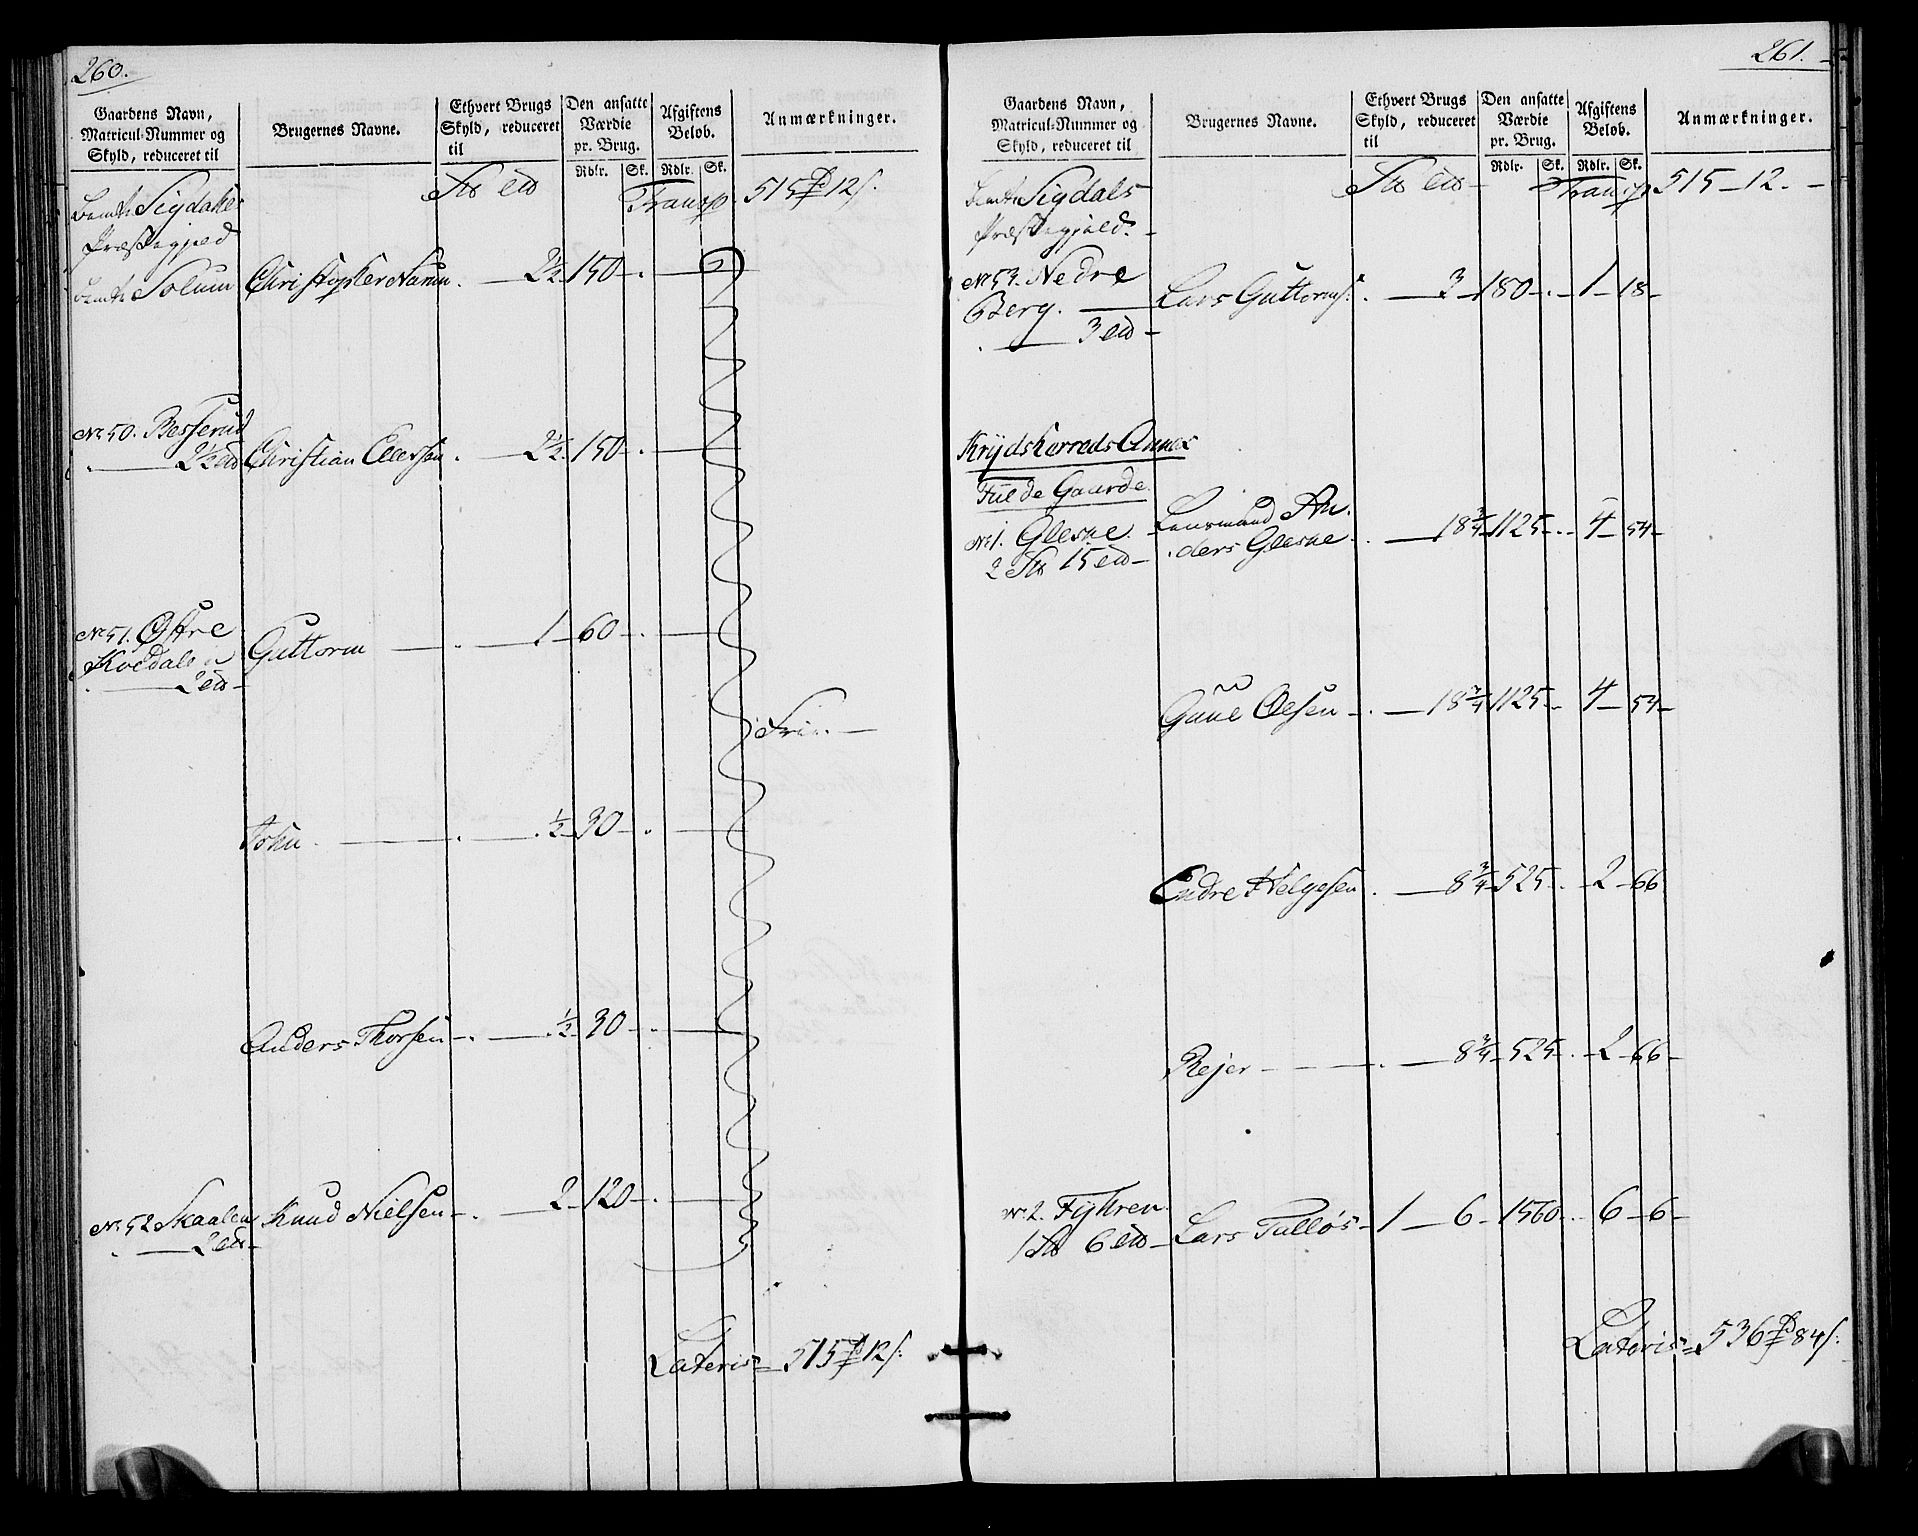 260.
Gaardens Navn,
Matricul-Nummer og
Skyld, reduceret til
Brugernes Navne.
Ethvert Brugs
Skyld, reduceret
til
Den ansatte
Værdie
pr. Brug.
Rdlr. Sk.
Afgiftens
Beløb.
Rdlr. Sk.
Anmærkninger.
Transp 515 12 s.
Præstegjeld
Solum Christopher 2½ 150
No 50. Besserud
2½ Christian Ellersen 2½ 150
No 51. Østre
Guttorm 1 60
2
Frie.
John ½ 30
Anders Thorsen ½ 30
No 52 Skaalen Knud Nielsen 2 120
2
Lateris 515 12 s.
261.
Gaardens Navn,
Matricul-Nummer og
Skyld, reduceret til
Brugernes Navne.
Ethvert Brugs
Skyld, reduceret
til
Den ansatte
Værdie
pr. Brug.
Rdlr. Sk.
Afgiftens
Beløb.
Rdlr. Sk.
Anmærkninger.
Sigdals Transp 515 12.
Præstegjeld.
No 53. Nedre
Berg. Lars Guttorms: 3 180 1 18
3
Krydsherreds Annex
Fulde Gaarde
No 1. Glesne. Lensmand An
2 15 ders Glesne 18¾ 1125 4 54
Guul Olsen 18¾ 1125 4 54
Endre Helgesen 8¾ 525 2 66
Rejer 8¾ 525 2 66
No 2. Fyhren
1 6 Lars Tulløs 1 6 1560 6 6
Lateris 536 84 s: